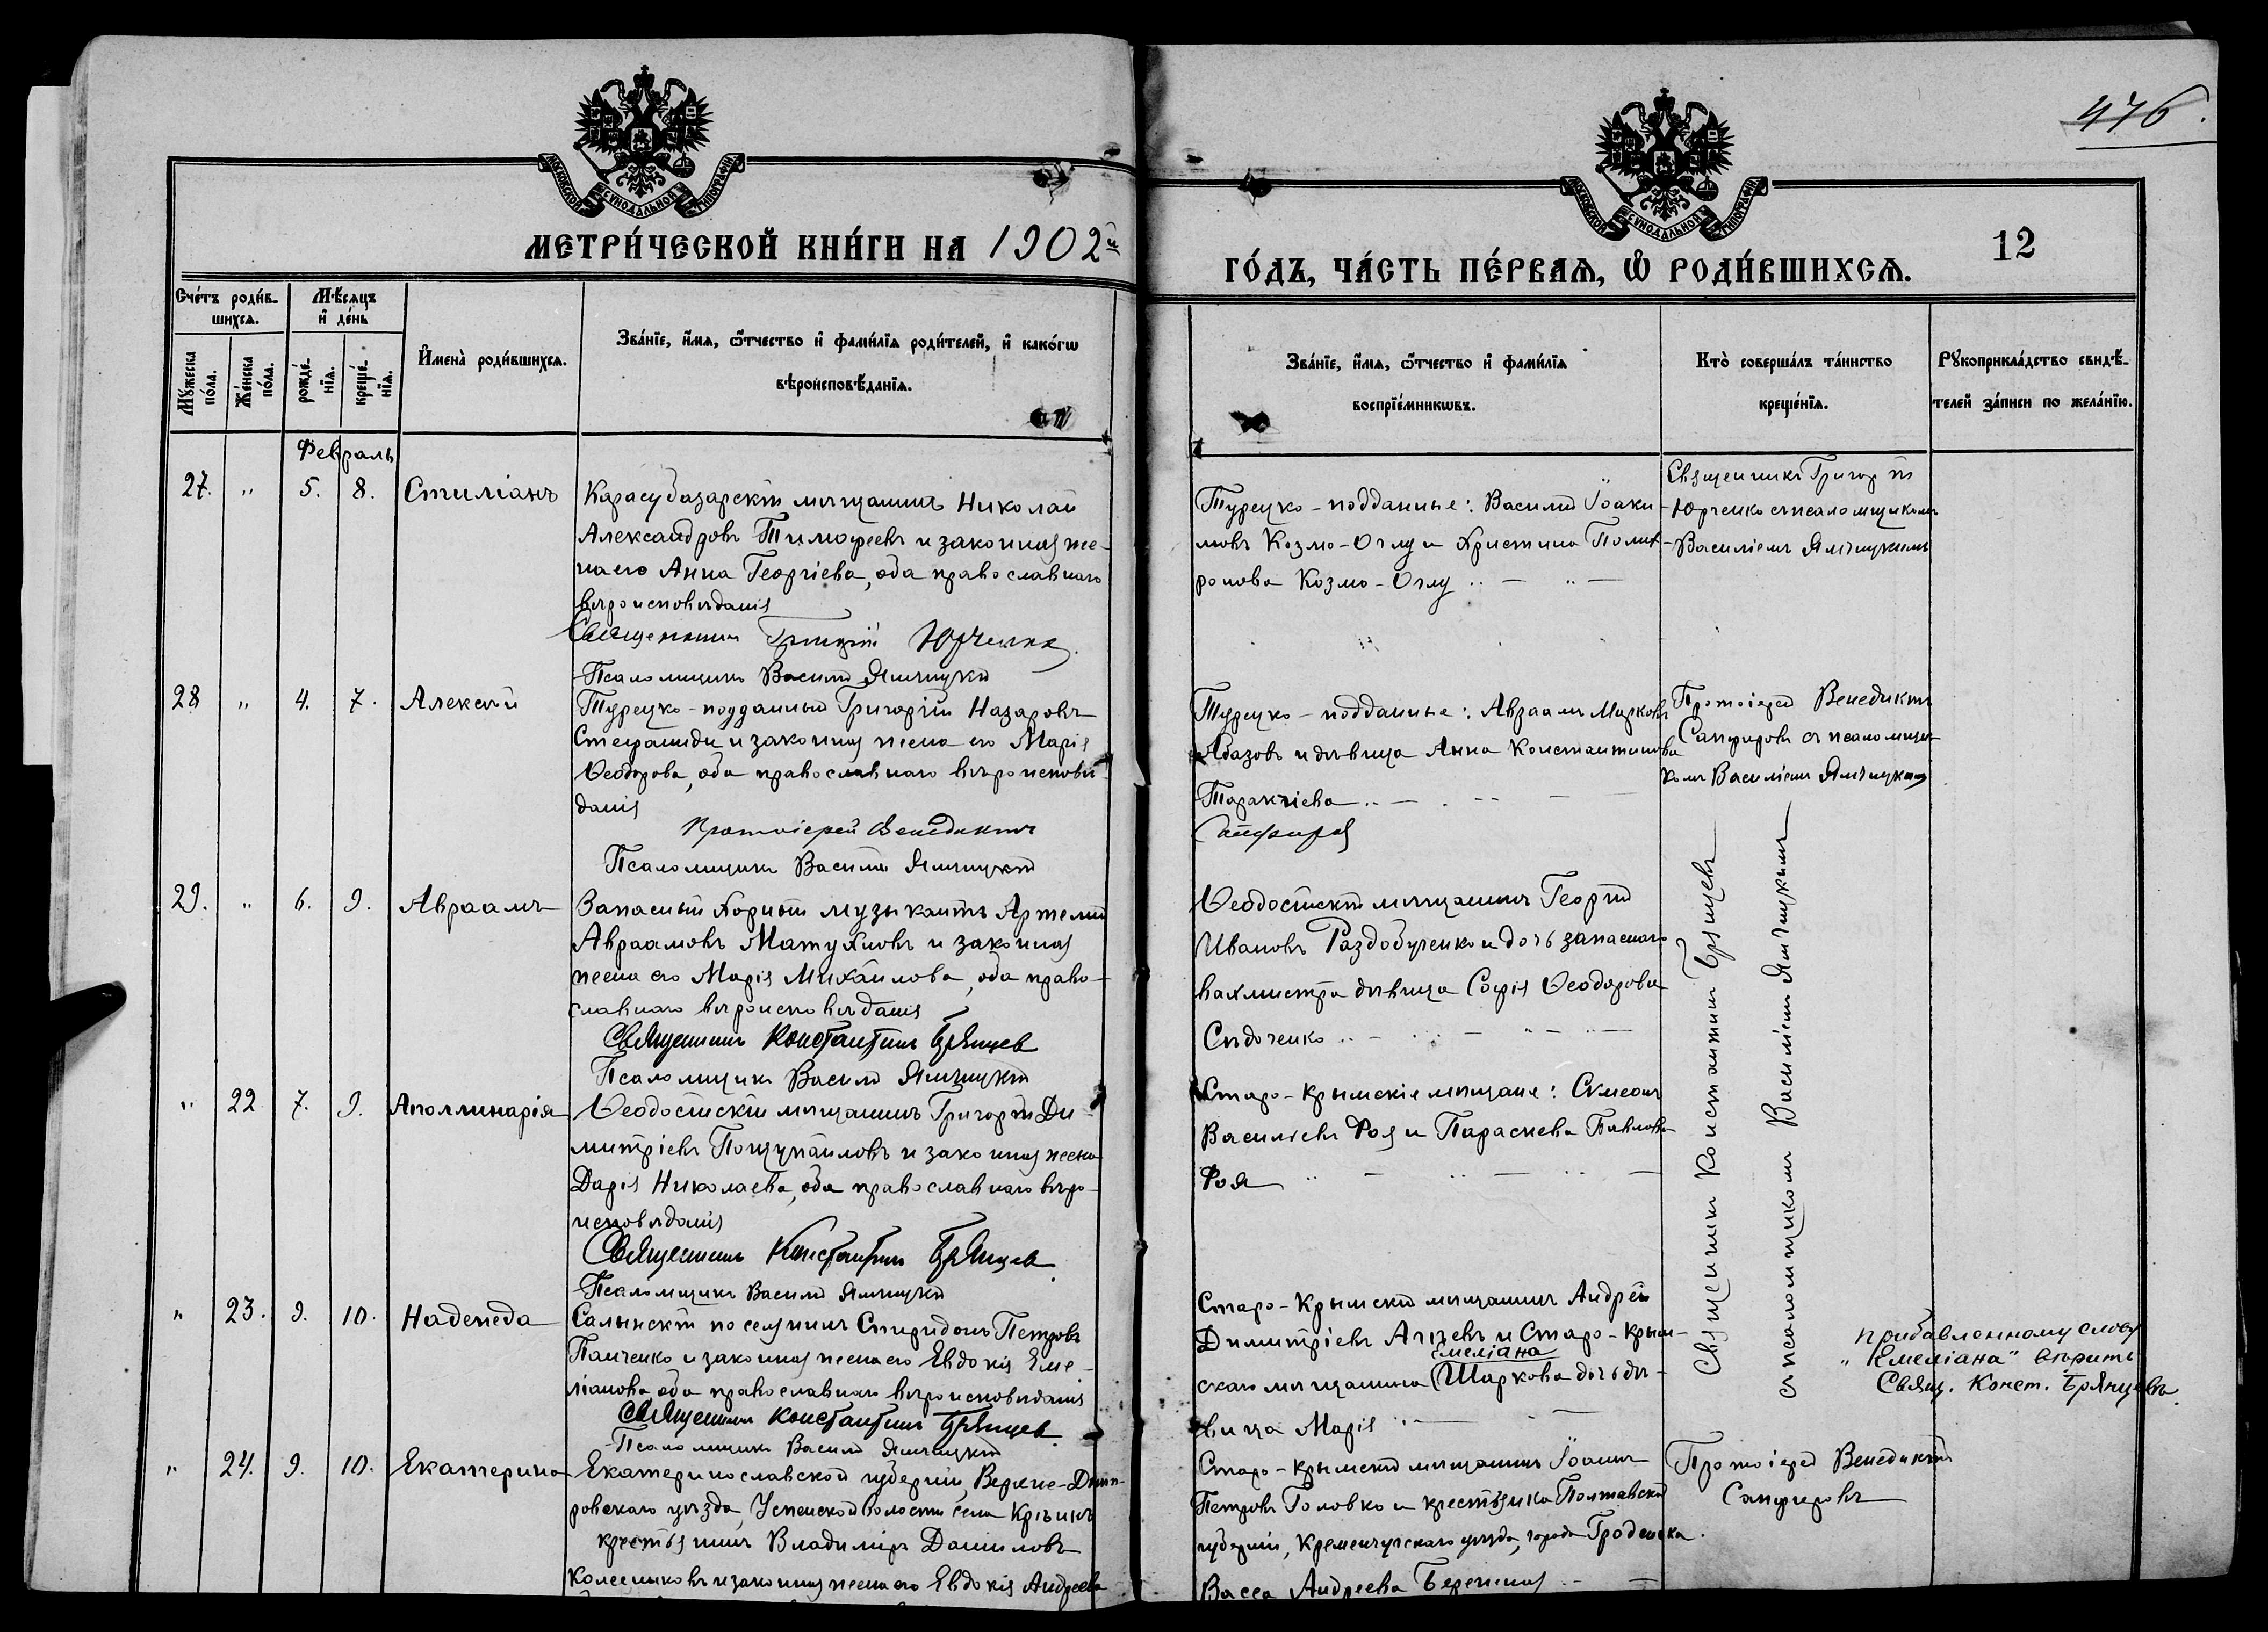 476.
МОСКОВСКОЙ СѴНОДАЛЬНОЙ ТИПОГРАФІИ
МОСКОВСКОЙ СѴНОДАЛЬНОЙ ТИПОГРАФІИ
МЕТРИ́ЧЕСКОЙ КНИ́ГИ НА 1902й
ГО́ДЪ, ЧА́СТЬ ПЕ́РВАѦ, Ѿ РОДИ́ВШИХСѦ.
12
Сче́тъ роди́в-
шихсѧ.
Мѣ́сѧцъ
и҆ де́нь
Мꙋ́жеска
по́ла.
Же́нска
по́ла.
рожде́-
нїѧ.
креще́-
нїѧ.
И҆мена̀ роди́вшихсѧ.
Зва́нїе, и҆́мѧ, ѻ҆́тчество и҆ фами́лїѧ роди́телей, и҆ како́гѡ
вѣроисповѣ́данїѧ.
Зва́нїе, и҆́мѧ, ѻ҆́тчество и҆ фами́лїѧ
воспрїе́мникѡвъ.
Кто̀ соверша́лъ та́инство
креще́нїѧ.
Рꙋкоприкла́дство свидѣ́-
телей за́писи по жела́нїю.
Февраль
27. " 5. 8. Стиліанъ
Карасубазарскій мѣщанинъ Николай
Александровъ Тимофеевъ и законная же-
на его Анна Георгіева, оба православнаго
вѣроисповѣданія
Священникъ Григорій Юрченко.
Псаломщикъ Василій Ямчицкій
Турецко-подданные: Василій Іоаки-
мовъ Козмо-Оглу и Христина Полит-
ронова Козмо-Оглу
Священникъ Григорій
Юрченко съ псаломщикомъ
Василіемъ Ямчицкимъ
28 " 4. 7. Алексѣй
Турецко-подданный Григорій Назаровъ
Стефаниди и законная жена его Марія
Ѳеодорова, оба православнаго вѣроисповѣ-
данія
Протоіерей Венедиктъ
Псаломщикъ Василій Ямчицкій
Турецко-подданные: Авраамъ Марковъ
Абазовъ и дѣвица Анна Константинова
Таракчіева
Сапфировъ
Протоіерей Венедиктъ
Сапфировъ съ псаломщи-
комъ Василіемъ Ямчицкимъ
29. " 6. 9. Авраамъ
Запасный хорный музыкантъ Артемій
Авраамовъ Матухновъ и законная
жена его Марія Михайлова, оба право-
славнаго вѣроисповѣданія
Священникъ Константинъ Брянцев
Псаломщикъ Василій Ямчицкій
Ѳеодосійскій мѣщанинъ Георгій
Ивановъ Раздобученко и дочь запаснаго
вахмистра дѣвица Софія Ѳеодорова
Сидоченко
Священникъ Константинъ Брянцевъ
съ псаломщикомъ Василіемъ Ямчицкимъ
" 22 7. 9. Аполлинарія
Ѳеодосійскій мѣщанинъ Григорій Ди-
митріевъ Пощупайловъ и законная жена
Дарія Николаева, оба православнаго вѣро-
исповѣданія
Священникъ Константинъ Брянцев.
Псаломщикъ Василій Ямчицкій
Старо-крымскіе мѣщане: Симеонъ
Василіевъ Фоя и Параскева Павлова
Фоя
" 23. 9. 10. Надежда
Салынскій поселянинъ Спиридонъ Петровъ
Панченко и законная жена его Евдокія Еме-
ліанова, оба православнаго вѣроисповѣданія
Священникъ Константинъ Брянцев.
Псаломщикъ Василій Ямчицкій
Старо-Крымскій мѣщанинъ Андрей
Димитріевъ Агчевъ и Старо-Крым-
Емеліана
скаго мѣщанина Шаркова дочь дѣ-
вица Марія
прибавленному слову
"Емеліана" вѣрить
Свящ. Конст. Брянцевъ.
" 24. 9. 10. Екатерина
Екатеринославской губерніи, Верхне-Днѣп-
ровскаго уѣзда, Успенской волости села
крестьянинъ Владиміръ Даниловъ
Колесниковъ и законная жена его Евдокія Андреева
Старо-крымскій мѣщанинъ Іоаннъ
Петровъ Головко и крестьянка Полтавской
губерніи, Кременчугскаго уѣзда, города Гродевска.
Васса Андреева Бережная
Протоіерей Венедиктъ
Сапфировъ